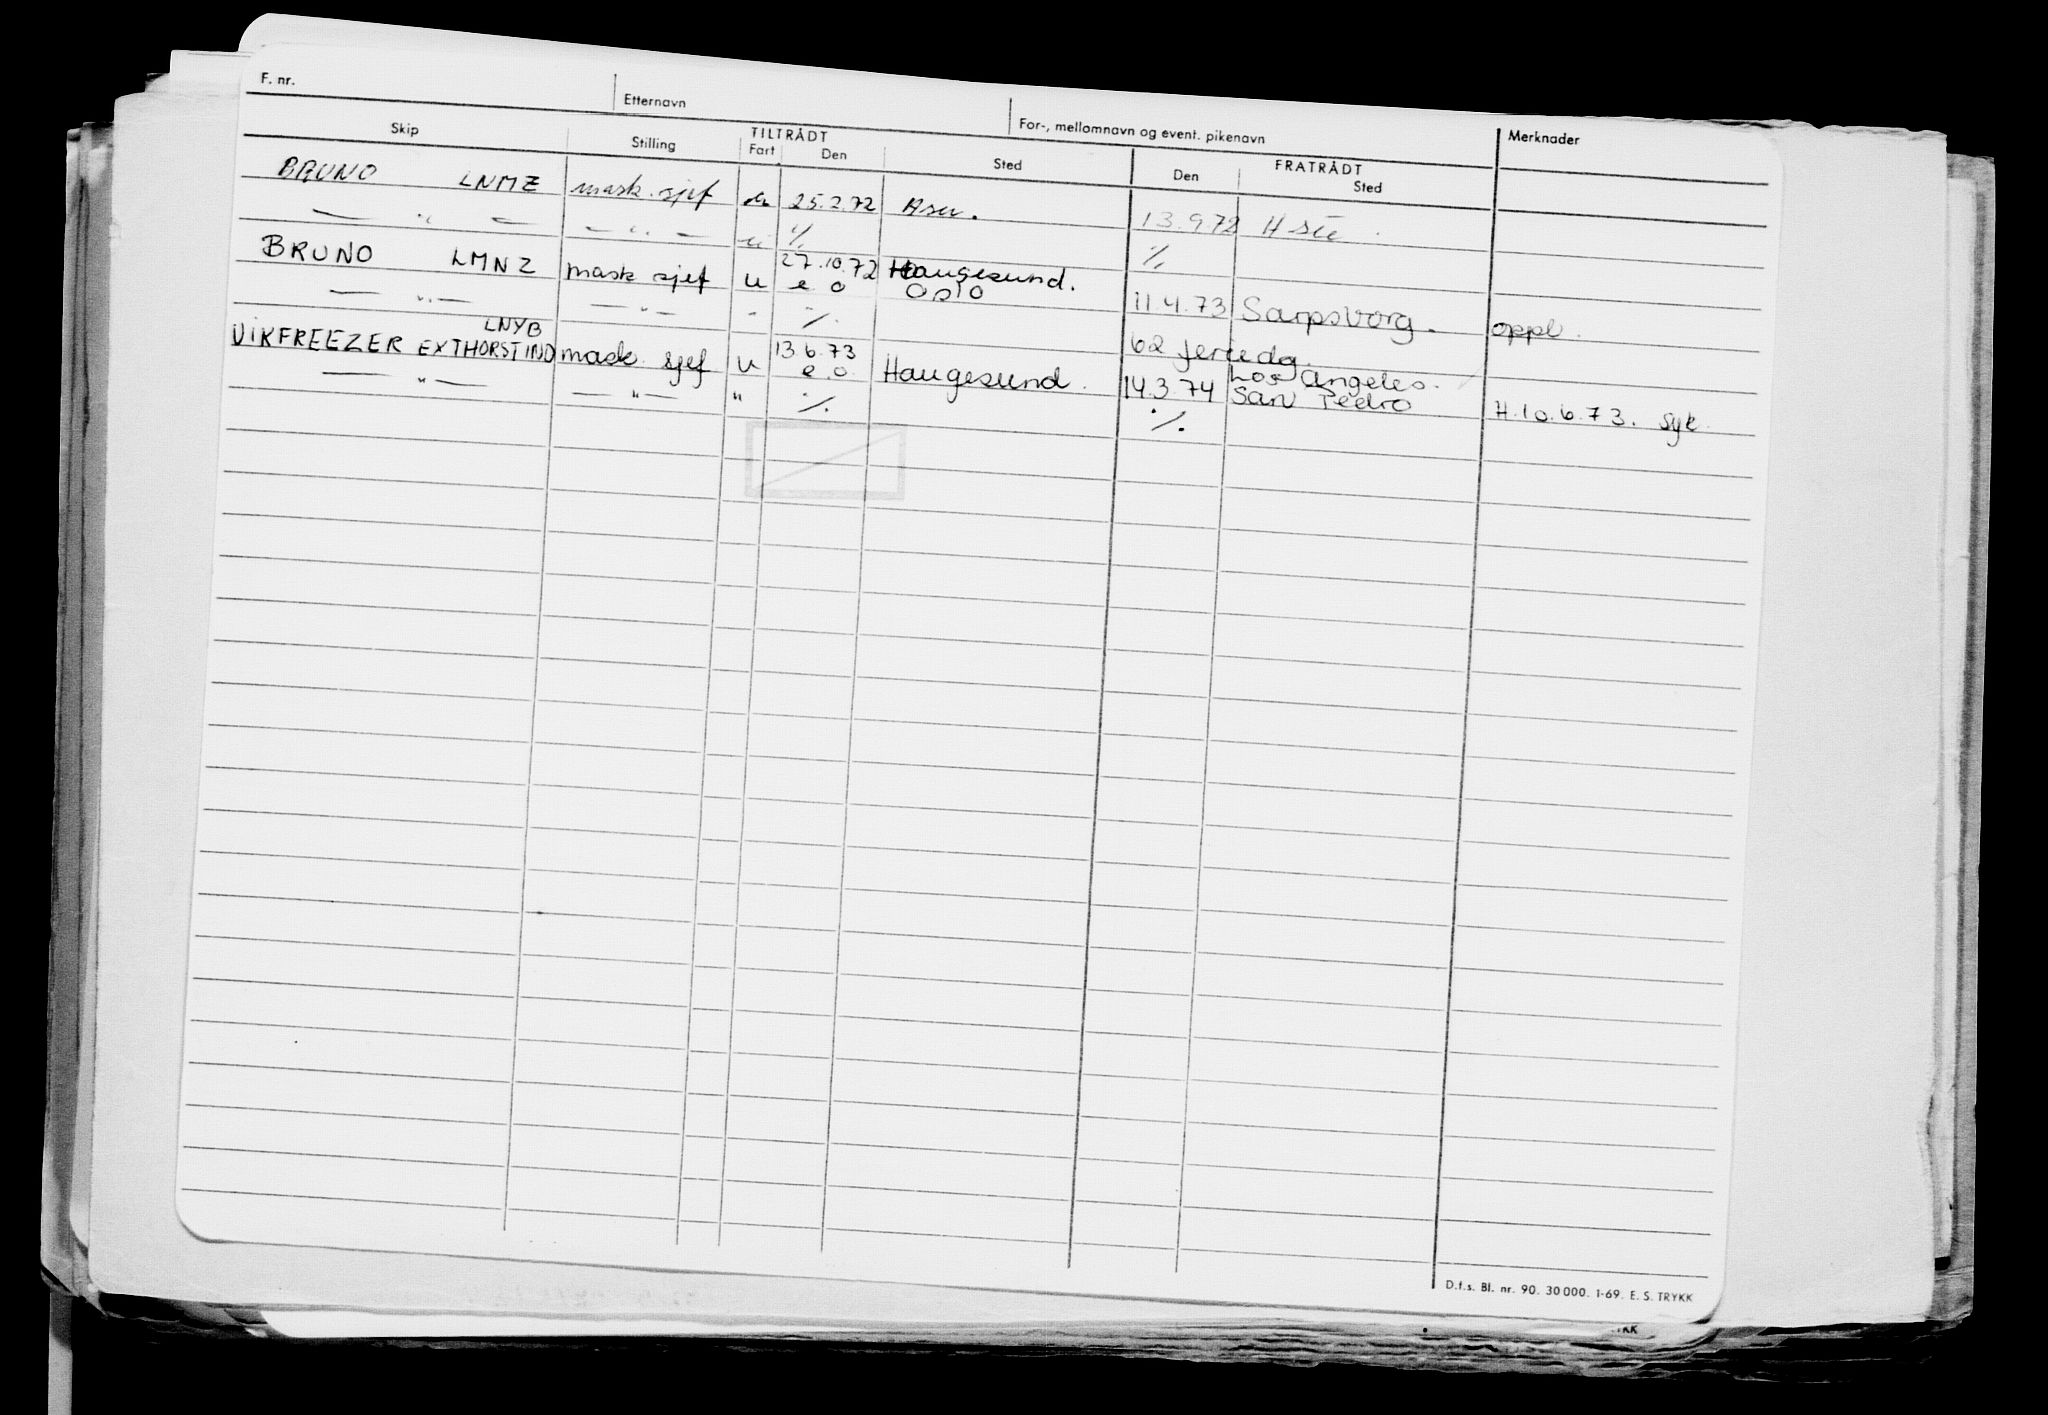 F. nr.
Etternavn
For-, mellomnavn og event. pikenavn
Merknader
Skip
Stilling
TILTRÅDT
Fart
Den
Sted
FRATRÅDT
Den
Sted
BRUNO LNMZ mask. sjef 25.2.72
— " — — " — ./. 13.9.72
BRUNO LMNZ mask sjef u 27.10.72 Haugesund. ./.
e o Oslo
— " — — " — " ./. 11.4.73 Sarpsborg. oppl.
LNYB
VIKFREEZER EX THORSTIND mask. sjef u 13.6.73 Haugesund. 62 feriedg.
e.o. Los Angeles.
— " — — " — " ./. 14.3.74 San Pedro H.10.6.73. Syk.
./.
D.f.s. Bl. nr. 90. 30 000. 1-69. E. S. TRYKK